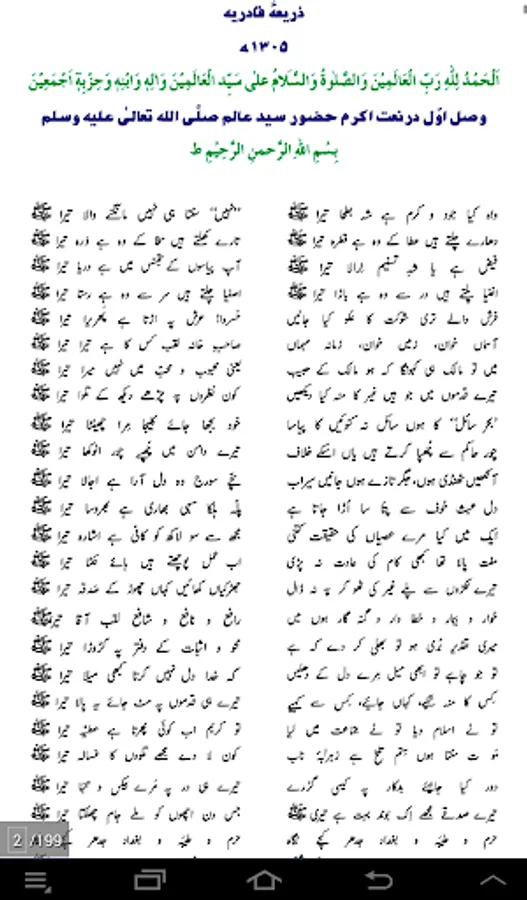 ذریعۂ قادریہ
۱۳۰۵ھ
اَلْحَمْدُ لِلّٰہِ رَبِّ الْعَالَمِیْنَ وَالصَّلٰوۃُ وَالسَّلَامُ عَلٰی سَیِّدِ الْعَالَمِیْنَ وَاٰلِہٖ وَابْنِہٖ وَحِزْبِہٖ اَجْمَعِیْنَ
وصل اوّل در نعت اکرم حضور سید عالم صلَّی اللہ تعالیٰ علیہ وسلم
بِسْمِ اللہِ الرَّحمٰنِ الرَّحِیْمِ ط
واہ کیا جود و کرم ہے شہِ بطحا تیرا ﷺ ”نہیں“ سنتا ہی نہیں مانگنے والا تیرا ﷺ
دھارے چلتے ہیں عطا کے وہ ہے قطرہ تیرا ﷺ تارے کھلتے ہیں سخا کے وہ ہے ذرہ تیرا ﷺ
فیض ہے یا شہِ تسنیم نرالا تیرا ﷺ آپ پیاسوں کے تجسّس میں ہے دریا تیرا ﷺ
اغنیا پلتے ہیں در سے وہ ہے باڑا تیرا ﷺ اصفیا چلتے ہیں سر سے وہ ہے رستا تیرا ﷺ
فرش والے تری شوکت کا علو کیا جانیں خسروا! عرش پہ اڑتا ہے پھریرا تیرا ﷺ
آسماں خوان، زمیں خوان، زمانہ مہماں صاحبِ خانہ لقب کس کا ہے تیرا تیرا ﷺ
میں تو مالک ہی کہوں گا کہ ہو مالک کے حبیب یعنی محبوب و محب میں نہیں میرا تیرا ﷺ
تیرے قدموں میں جو ہیں غیر کا منہ کیا دیکھیں کون نظروں پہ چڑھے دیکھ کے تلوا تیرا ﷺ
بحرِ سائل کا ہوں سائل نہ کنوئیں کا پیاسا خود بجھا جائے کلیجا مرا چھینٹا تیرا ﷺ
چور حاکم سے چھپا کرتے ہیں یاں اسکے خلاف تیرے دامن میں چھپے چور انوکھا تیرا ﷺ
آنکھیں ٹھنڈی ہوں، جگر تازے ہوں جانیں سیراب سچے سورج وہ دل آرا ہے اجالا تیرا ﷺ
دل عبث خوف سے پتا سا اُڑا جاتا ہے پلّہ ہلکا سہی بھاری ہے بھروسا تیرا ﷺ
ایک میں کیا مرے عصیاں کی حقیقت کتنی مجھ سے سو لاکھ کو کافی ہے اشارہ تیرا ﷺ
مفت پالا تھا کبھی کام کی عادت نہ پڑی اب عمل پوچھتے ہیں ہائے نکما تیرا ﷺ
تیرے ٹکڑوں سے پلے غیر کی ٹھوکر پہ نہ ڈال جھڑکیاں کھائیں کہاں چھوڑ کے صدقہ تیرا ﷺ
خوار و بیمار و خطاوار و گنہ گار ہوں میں رافع و نافع و شافع لقب آقا تیرا ﷺ
میری تقدیر بُری ہو تو بھلی کر دے کہ ہے محو و اثبات کے دفتر پہ کڑوڑا تیرا ﷺ
تو جو چاہے تو ابھی میل مرے دل کے دھلیں کہ خدا دل نہیں کرتا کبھی میلا تیرا ﷺ
کس کا منہ تکیے، کہاں جائیے، کس سے کہیے تیرے ہی قدموں پہ مٹ جائے یہ پالا تیرا ﷺ
تو نے اسلام دیا تو نے جماعت میں لیا تو کریم اب کوئی پھرتا ہے عطیہ تیرا ﷺ
موت سنتا ہوں ستم تلخ ہے زہرابۂ ناب کون لا دے مجھے تلووں کا غسالہ تیرا ﷺ
دور کیا جانیے بدکار پہ کیسی گزرے تیرے ہی در پہ مرے بیکس و تنہا تیرا ﷺ
تیرے صدقے مجھے اِک بوند بہت ہے تیری ﷺ جس دن اچھوں کو ملے جام چھلکتا تیرا ﷺ
حرم و طیبہ و بغداد جدھر کیجے نگاہ
2 /199